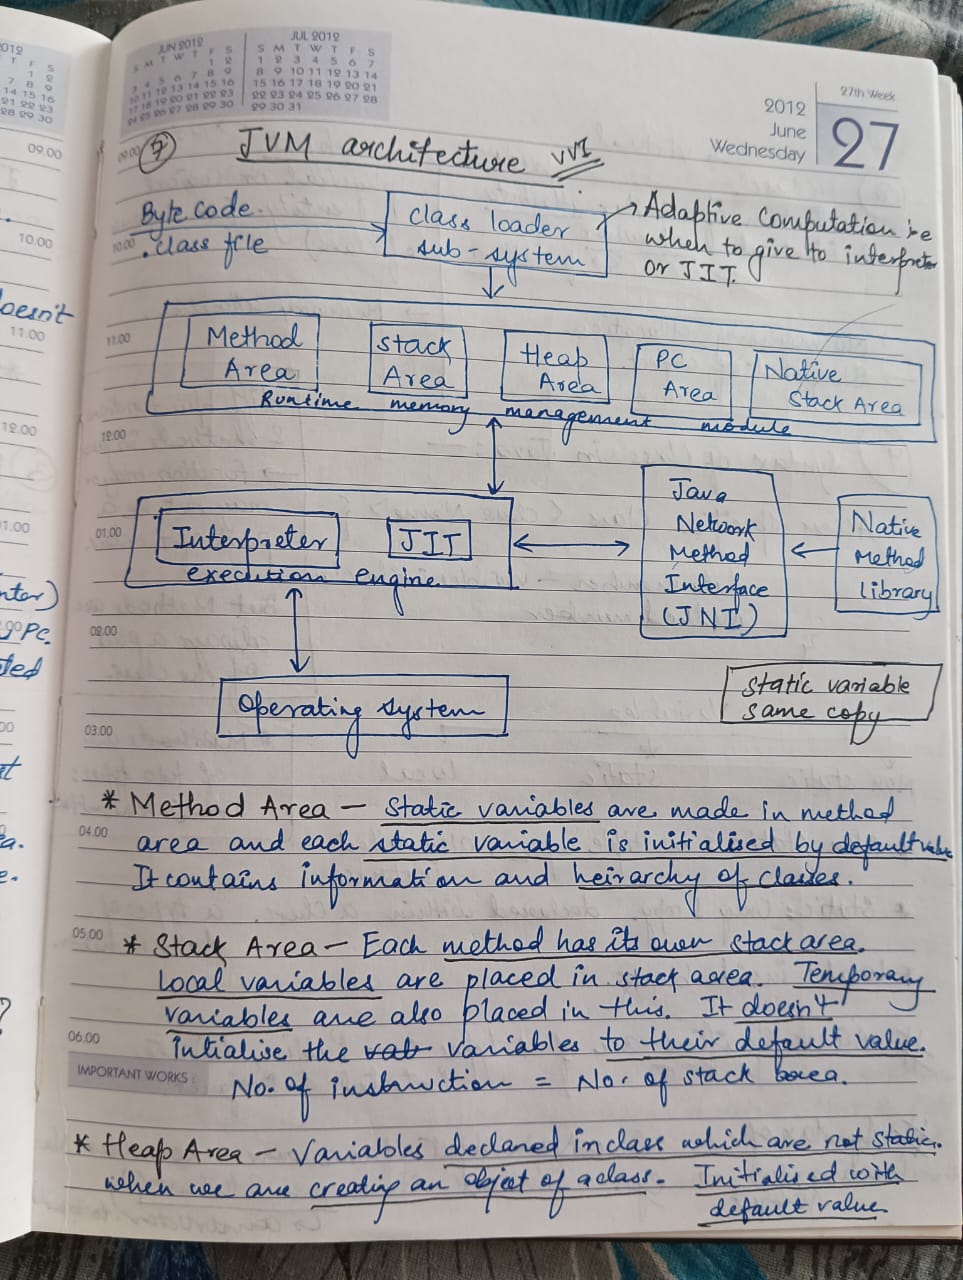 JUN 2012
S M T W T F S
1 2
3 4 5 6 7 8 9
10 11 12 13 14 15 16
17 18 19 20 21 22 23
24 25 26 27 28 29 30
JUL 2012
S M T W T F S
1 2 3 4 5 6 7
8 9 10 11 12 13 14
15 16 17 18 19 20 21
22 23 24 25 26 27 28
29 30 31
2012
June
Wednesday
27th Week
27
09.00
7 JVM architecture VVI
Byte code
.class file
10.00
class loader
sub-system
Adaptive Computation i.e
when to give to interpreter
or JIT.
11.00
Method
Area
Stack
Area
Heap
Area
PC
Area
Native
Stack Area
Runtime memory management module
12.00
01.00
Interpreter
JIT
execution engine
Java
Network
Method
Interface
(JNI)
Native
Method
library
02.00
Operating system
static variable
same copy
03.00
* Method Area - Static variables are made in method
04.00
area and each static variable is initialised by default value
It contains information and heirarchy of classes.
05.00
* Stack Area - Each method has its own stack area.
Local variables are placed in stack area. Temporary
variables are also placed in this. It doesn't
06.00
intialise the variables to their default value.
IMPORTANT WORKS
No. of instruction = No. of stack
* Heap Area - Variables declared in class which are not static.
when we are creating an object of a class. Initialised with
default value
2012
T F S
1 2
7 8 9
14 15 16
21 22 23
28 29 30
09.00
10.00
doesn't
11.00
12.00
01.00
PC.